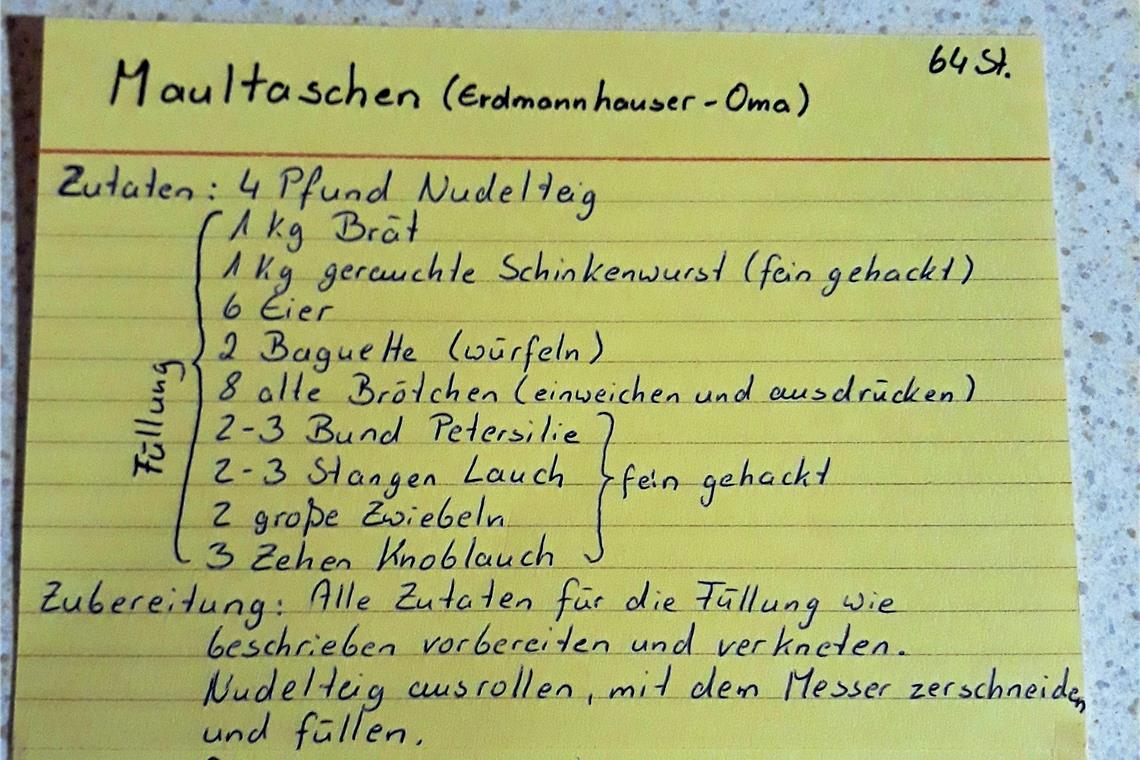 64 St.
Maultaschen (Erdmannhauser-Oma)
Zutaten: 4 Pfund Nudelteig
1 Kg Brät
1 Kg gerauchte Schinkenwurst (fein gehackt)
6 Eier
2 Baguette (würfeln)
8 alte Brötchen (einweichen und ausdrücken)
2-3 Bund Petersilie
2-3 Stangen Lauch
2 große Zwiebeln
3 Zehen Knoblauch
Füllung
fein gehackt
Zubereitung: Alle Zutaten für die Füllung wie
beschrieben vorbereiten und verkneten.
Nudelteig ausrollen, mit dem Messer zerschneiden
und füllen.